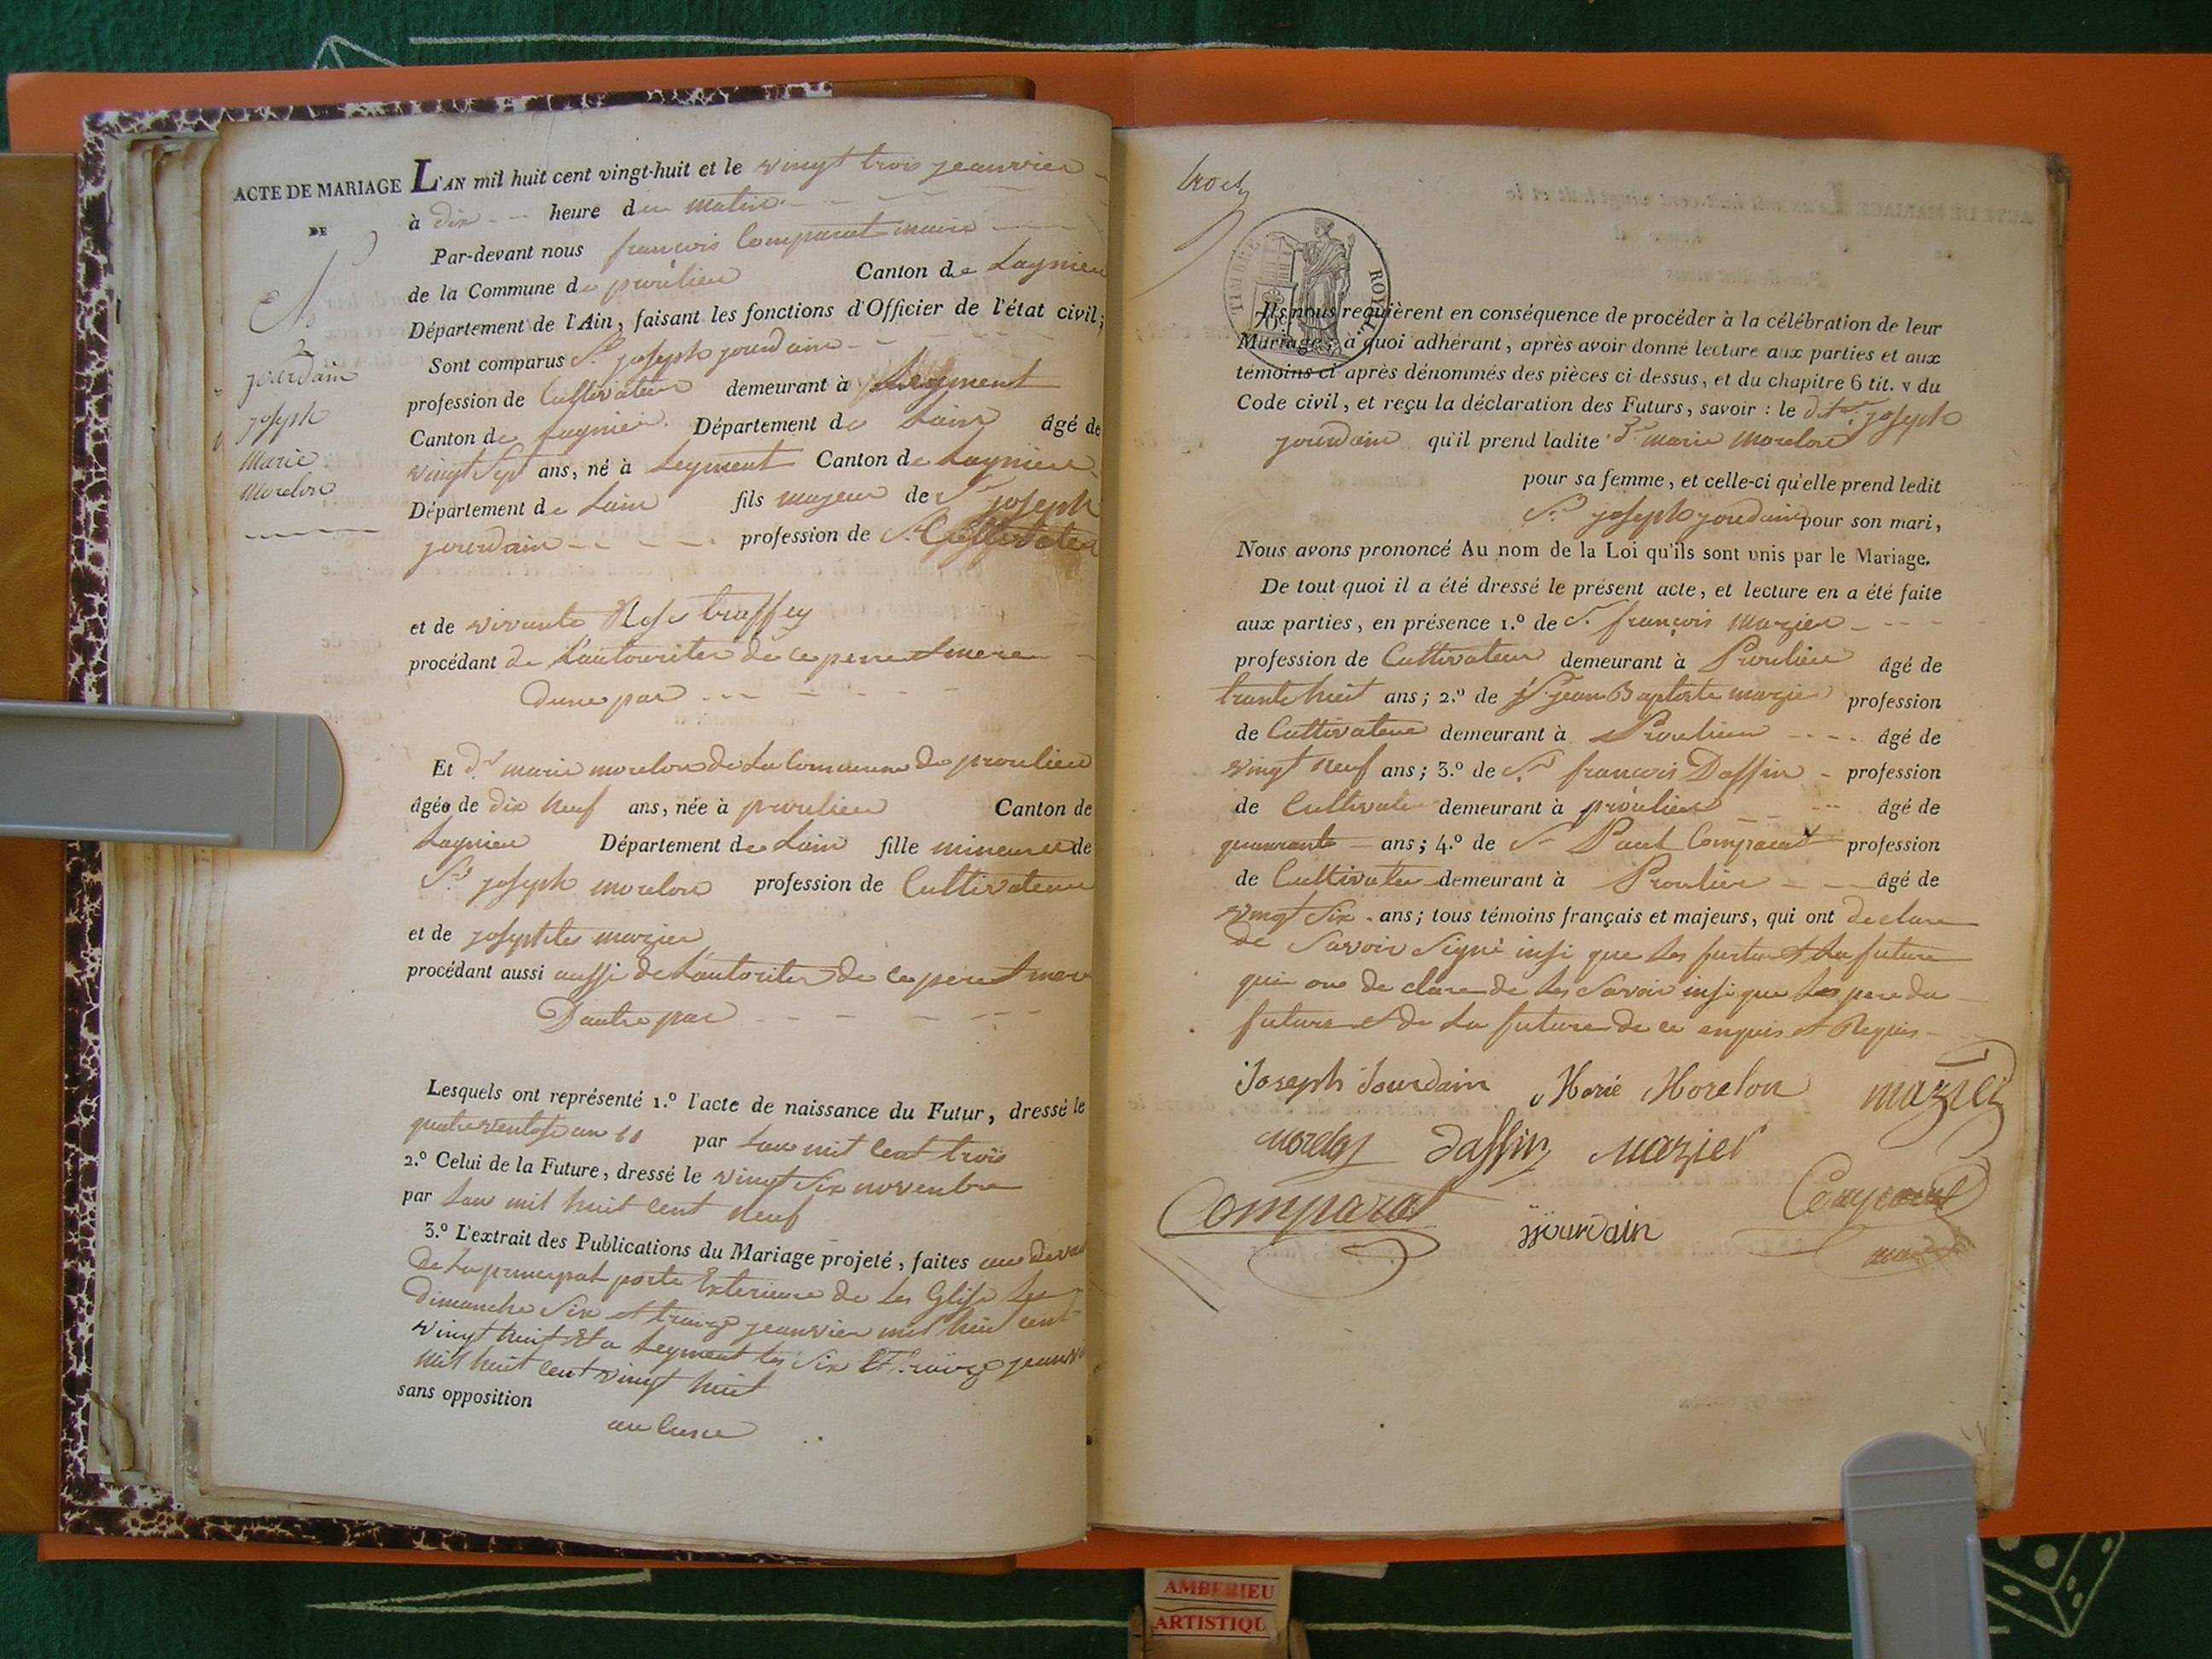 ACTE DE MARIAGE
DE
No
2
jourdain
joseph
Marie
Morelon
L'AN mil huit cent vingt-huit et le vingt trois jeanvier
à dix heure du matin
Par-devant nous francois Comparat maire
de la Commune de proulieu Canton de Lagnieu
Département de l'Ain, faisant les fonctions d'Officier de l'état civil;
Sont comparus Sr joseph jourdain
profession de Cultivateur demeurant à Leyment
Canton de Lagnieu Département de Lain âgé de
vingt Sept ans, né à Leyment Canton de Lagnieu
Département de Lain fils majeur de Sr joseph
jourdain profession de Cultivateur
et de vivante Rose truffey
procédant de Lautouriter de ce pere et mere
dune par
Et dlle marie morelon de La Commune de proulieu
âgée de dix neuf ans, née à proulieu Canton de
Lagnieu Département de Lain fille mineure de
Sr joseph morelon profession de Cultivateur
et de josephte mazier
procédant aussi aussi de Lautoriter de ce pere et mere
Dautre par
Lesquels ont représenté 1.º l'acte de naissance du Futur, dressé le
quatre ventose an par Lan mil cent trois
2.º Celui de la Future, dressé le vingt Six novembre
par Lan mil huit cent neuf
3.º L'extrait des Publications du Mariage projeté, faites au devan
de La principal porte Exterieure de Les Glise Les
dimanche Six et traize jeanvier mil huit cent
vingt huit Et a Leyment les Six Et traize jeanvi
mil huit cent vingt huit
sans opposition
aucune
TIMBRE ROYAL
Ils nous requièrent en conséquence de procéder à la célébration de leur
Mariage; à quoi adhérant, après avoir donné lecture aux parties et aux
témoins ci après dénommés des pièces ci dessus, et du chapitre 6 tit. v du
Code civil, et reçu la déclaration des Futurs, savoir : le dit Sr joseph
jourdain qu'il prend ladite dlle marie morelon
pour sa femme, et celle-ci qu'elle prend ledit
Sr joseph jourdain pour son mari,
Nous avons prononcé Au nom de la Loi qu'ils sont unis par le Mariage.
De tout quoi il a été dressé le présent acte, et lecture en a été faite
aux parties, en présence 1.º de Sr françois Mazier
profession de Cultivateur demeurant à Proulieu âgé de
trante huit ans; 2.º de Sr jean Baptiste mazier profession
de Cultivateur demeurant à Proulieu âgé de
vingt neuf ans; 3.º de Sr francois Daffin profession
de Cultivateur demeurant à proulieu âgé de
quaurante ans; 4.º de Sr Paul Comparat profession
de Cultivateur demeurant à Proulieu âgé de
vingt Six ans; tous témoins français et majeurs, qui ont declare
de Savoir Signé insi que Les furtur et La future
qui on declare de Les Savoir insi que Les pere du
future et de La future de ce enquis et Requis
Joseph Jourdain Marie Morelon mazier
morelon daffin mazier
Comparat jjourdain Comparat
maire
AMBERIEU
ARTISTIQU